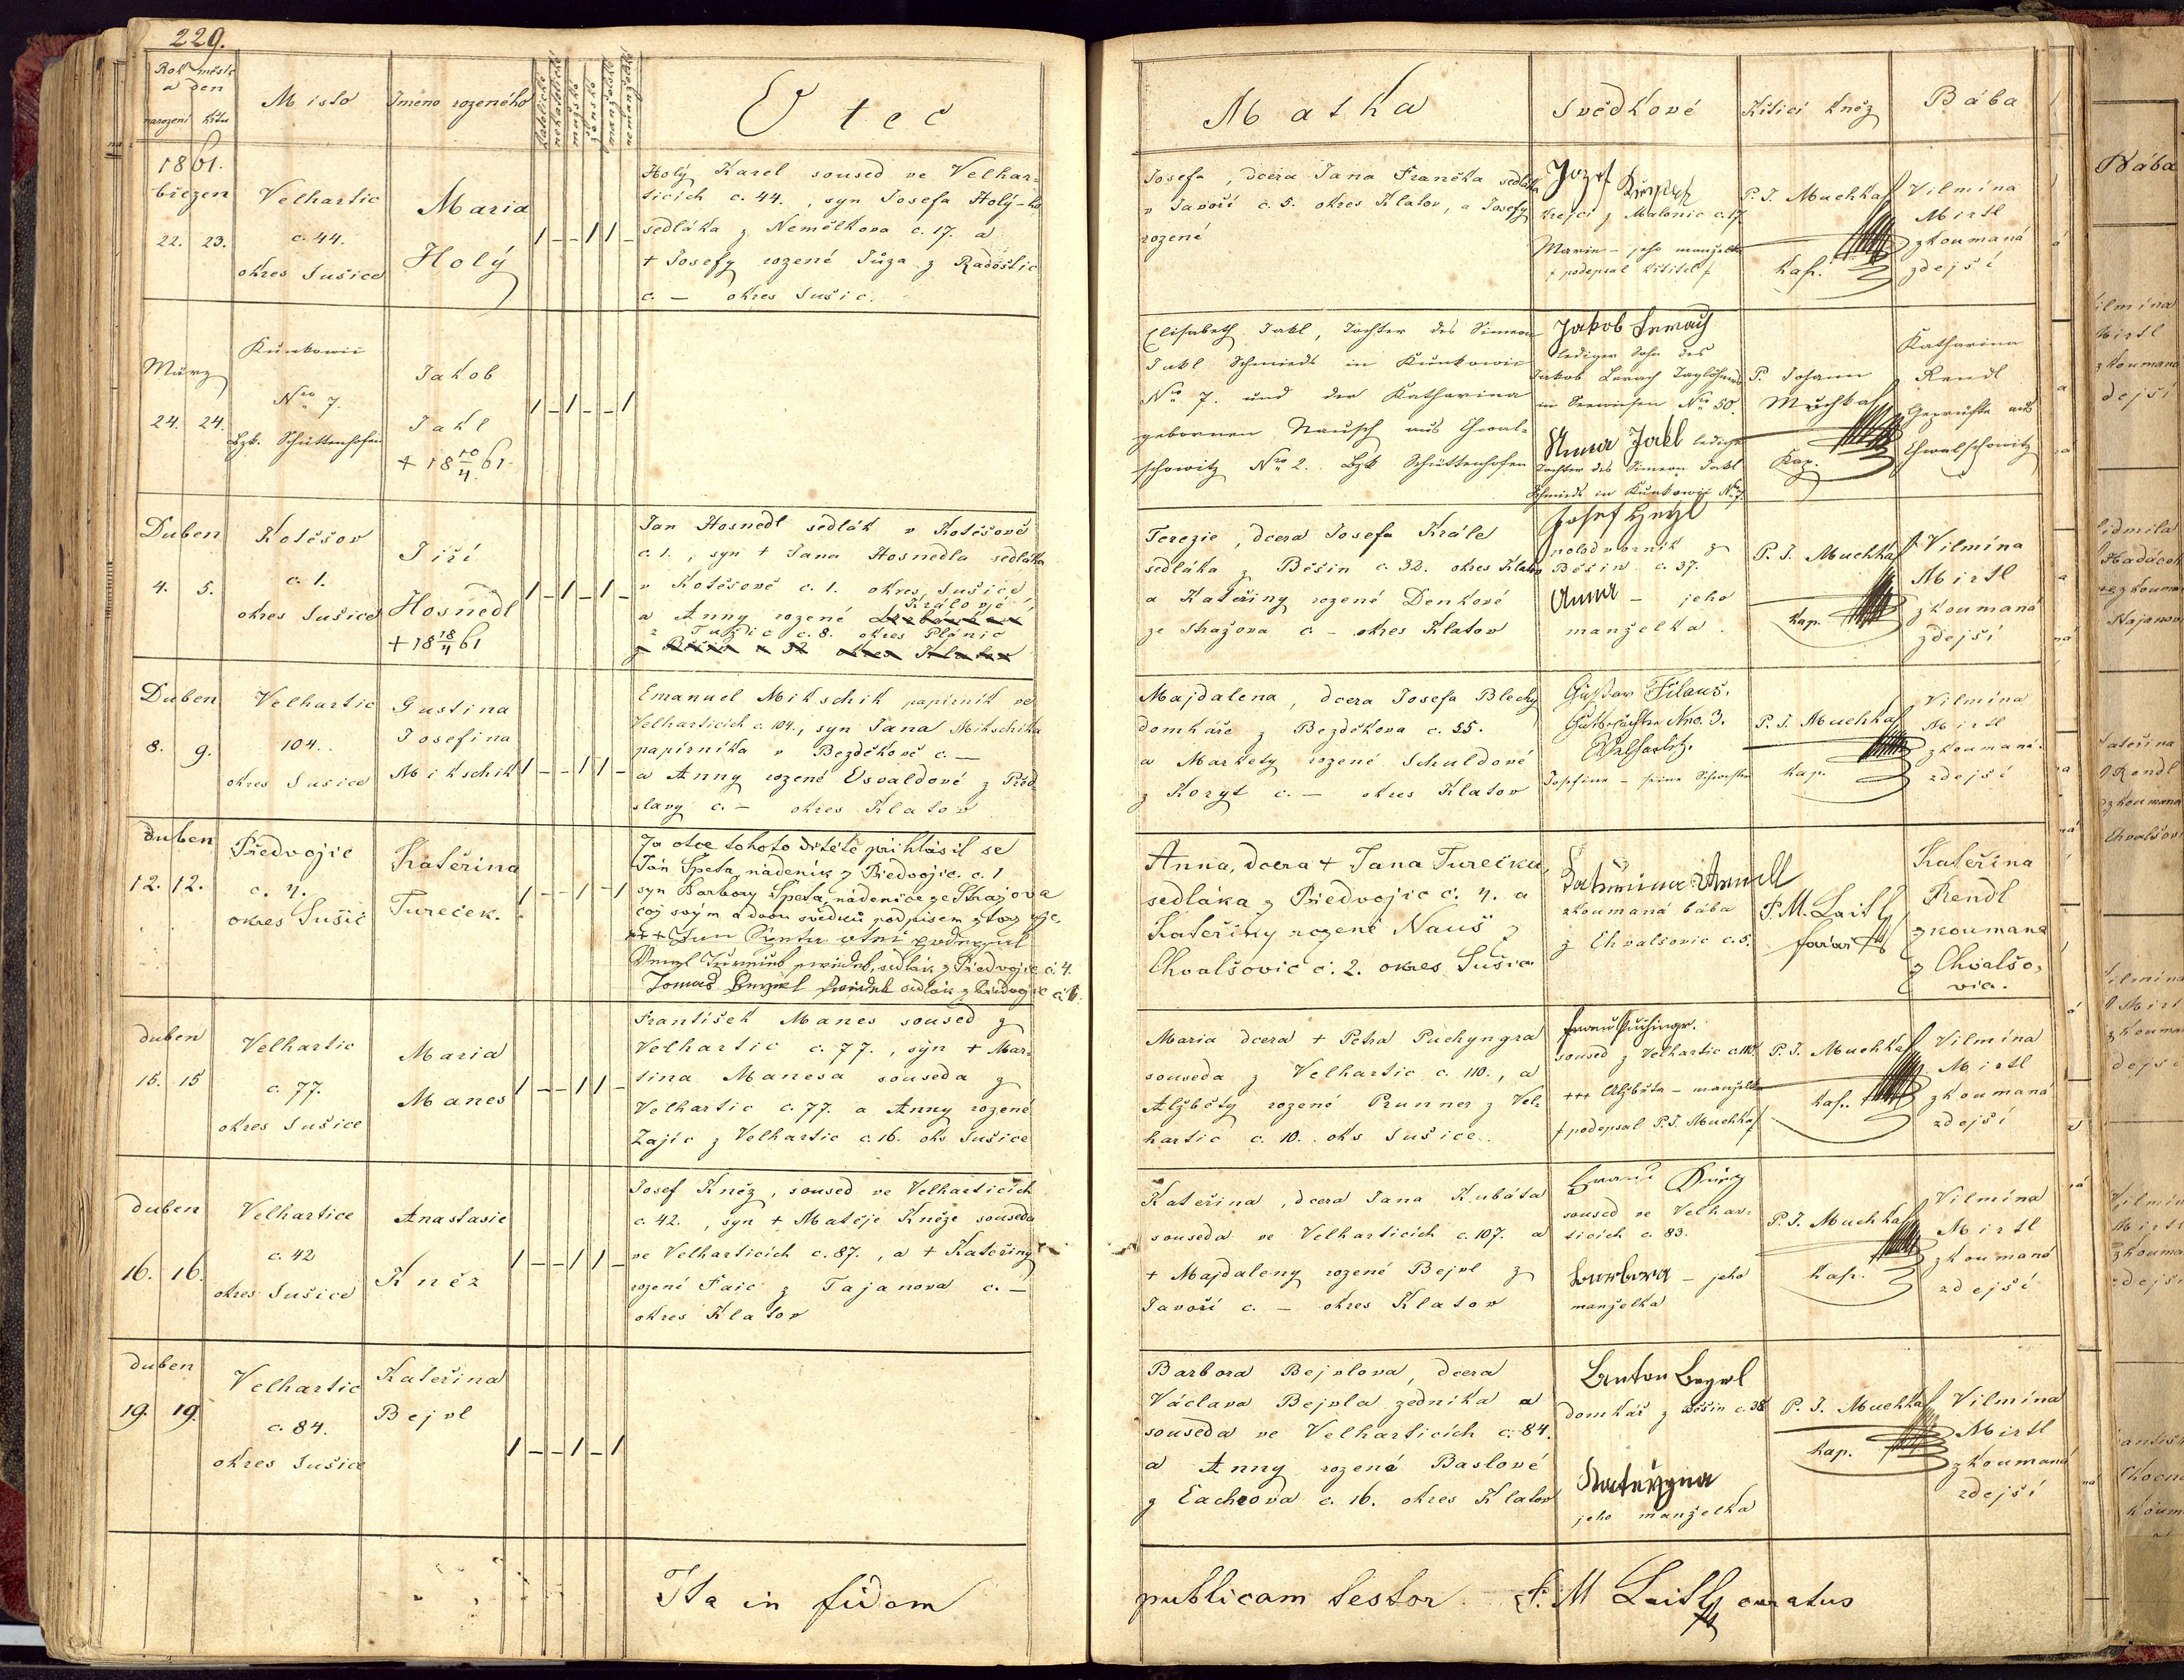 229.
Rok měsíc
a den
narození křtu
Místo
Jmeno rozeného
katolické
nekatolické
mužské
ženské
manželské
nemanželské
Otec
1861.
březen
22. 23.
Velhartic
c. 44.
okres Sušice
Maria
Holý
1 – – 1 1 –
Holý Karel soused ve Velhar-
ticích c. 44., syn Josefa Holý-ho
sedláka z Nemělkova c. 17. a
+ Josefy rozené Tůza z Radostic
c. – okres Sušic.
März
24. 24.
Kunkowic
Nro 7.
Bzk. Schüttenhofen
Jakob
Jakl
+ 18 10/4 61.
1 – 1 – – 1
Duben
4. 5.
Kotěšov
c. 1.
okres Sušice
Jiří
Hosnedl
+ 18 18/4 61
1 – 1 – 1 –
Jan Hosnedl sedlák v Kotěšově
c. 1., syn + Jana Hosnedla sedláka
v Kotěšově c. 1. okres Sušice
Královjé
a Anny rozené
z Tužic c. 8. okres Plánic
Duben
8. 9.
Velhartic
104.
okres Susice
Gustina
Josefina
Mikschik
1 – – 1 1 –
Emanuel Mikschik papirník ve
Velharticích c. 104., syn Jana Mikschika
papírníka v Bezděkově c. –
a Anny rozené Osvaldové z Před
slavy c. – okres Klatov
duben
12. 12.
Předvojic
c. 4.
okres Sušic
Kateřina
Tureček.
1 – – 1 – 1
Za otce tohoto dítěte přihlásil se
Ján Speta, nádeník z Předvojic. c. 1
syn Barbory Speta, nádenice ze Stražova
což svým a dvou svědků podpisem ztvrzuje.
+++ Jan Speta otec podepsal
sedlák z Předvojic č. 4.
Tomáš Bejvl svědek sedlák z Předvojic č. 6.
duben
15. 15
Velhartic
c. 77.
okres Sušice
Maria
Manes
1 – – 1 1 –
František Manes soused z
Velhartic c. 77., syn + Mar-
tina Manesa souseda z
Velhartic c. 77. a Anny rozené
Zajíc z Velhartic c. 16. oks Sušice
duben
16. 16.
Velhartice
c. 42
okres Sušice
Anastasie
Kněz
1 – – 1 1 –
Josef Kněz, soused ve Velharticích
c. 42., syn + Matěje Kněze souseda
ve Velharticích c. 87., a + Kateřiny
rozené Faic z Tajanova c. –
okres Klatov
duben
19. 19.
Velhartic
c. 84.
okres Sušice
Kateřina
Bejvl
1 – – 1 – 1
Ita in fidem
Matka
Svědkové
Křtící kněz
Bába
Josefa, dcera Jana Franěka sedláka
v Javoří c. 5. okres Klatov, a Josefy
rozené
Jozef
krejcí z Malonic c. 17.
Marie – jeho manželka
+ podepsal křtitel +
P. J. Muchka
kap.
Vilmína
Mirtl
zkoumaná
zdejší
Elisabeth Jakl, Tochter des Simeon
Jakl Schmieds in Kunkowic
Nro 7. und der Katharina
gebornen Nausch aus Chwal-
schowitz Nro 2. Bzk Schüttenhofen
Jakob Lerach
lediger Sohn des
Jakob Lerach Taglöhners
in Seewiesen Nro 50.
Anna Jakl ledige
Tochter des Simeon Jakl
Schmieds in Kunkowic Nro 7.
P. Johann
Muchka
Kap.
Katharina
Rendl
Geprüfte aus
Chwalschowitz
Terezie, dcera Josefa Krále
sedláka z Běšin c. 32. okres Klatov
a Kateřiny rozené Denkové
ze Stražova c. – okres Klatov
Josef
polodvorník z
Běšin c. 37.
Anna – jeho
manželka.
P. J. Muchka
kap.
Vilmína
Mirtl
zkoumaná
zdejší
Majdalena, dcera Josefa Blechy
domkáře z Bezděkova c. 55.
a Markety rozené Schuldové
z Koryt c. – okres Klatov
Gustav Filaus.
Gutspächter Nro. 3.
Welhartitz.
Josefine – seine Schwester
P. J. Muchka
kap.
Vilmína
Mirtl
zkoumaná
zdejší
Anna, dcera + Jana Turečka,
sedláka z Předvojic č. 4. a
Kateřiny rozené Nauš z
Chvalšovic č. 2. okres Sušic.
zkoumaná bába
z Chvalšovic c. 5.
F. M. Laitl
farář
Kateřina
Rendl
zkoumaná
z Chvalšo-
vic.
Maria dcera + Petra Puchyngra
souseda z Velhartic c. 110., a
Alžběty rozené Prunner z Vel-
hartic c. 10. oks Sušice.
soused z Velhartic c. 110.
+++ Alžběta – manželka
+ podepsal P. J. Muchka
P. J. Muchka
kap.
Vilmína
Mirtl
zkoumaná
zdejší
Kateřina, dcera Jana Kubáta
souseda ve Velharticích c. 107. a
+ Majdaleny rozené Bejvl z
Javoří c. – okres Klatov
soused ve Velhar-
ticích c. 83.
Barbora – jeho
manželka
P. J. Muchka
kap.
Vilmína
Mirtl
zkoumaná
zdejší
Barbora Bejvlova, dcera
Václava Bejvla zedníka a
souseda ve Velharticích c. 84.
a Anny rozené Baslové
z Čachrova c. 16. okres Klatov
Anton Beywl
domkář z Běšin c. 38
Kateřyna
jeho manželka
P. J. Muchka
kap.
Vilmína
Mirtl
zkoumaná
zdejší
publicam testor. F. M Laitl curatus
Bába